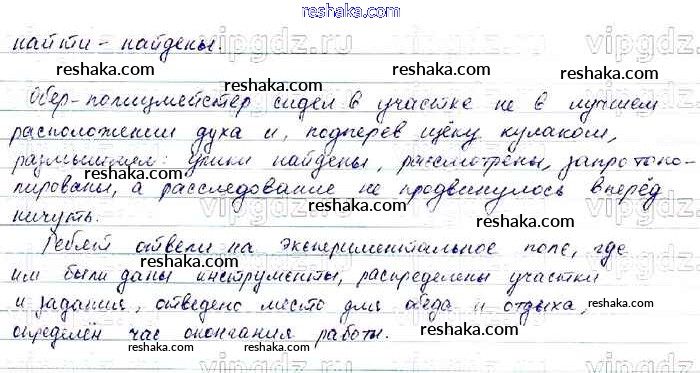 reshaka.com
найти - найдены.
reshaka.com reshaka.com reshaka.com
Обер-полицмейстер сидел в участке не в лучшем
расположении духа и, подперев щёку кулаком,
размышлял: улики найдены, рассмотрены, запротоко-
пированы, а расследование не продвинулось вперёд
ничуть.
reshaka.com reshaka.com reshaka.com
Ребят отвели на экспериментальное поле, где
им были даны инструменты, распределены участки
и задания, отведено место для обеда и отдыха,
определён час окончания работы.
reshaka.com reshaka.com reshaka.com
reshaka.com
vipgdz.ru